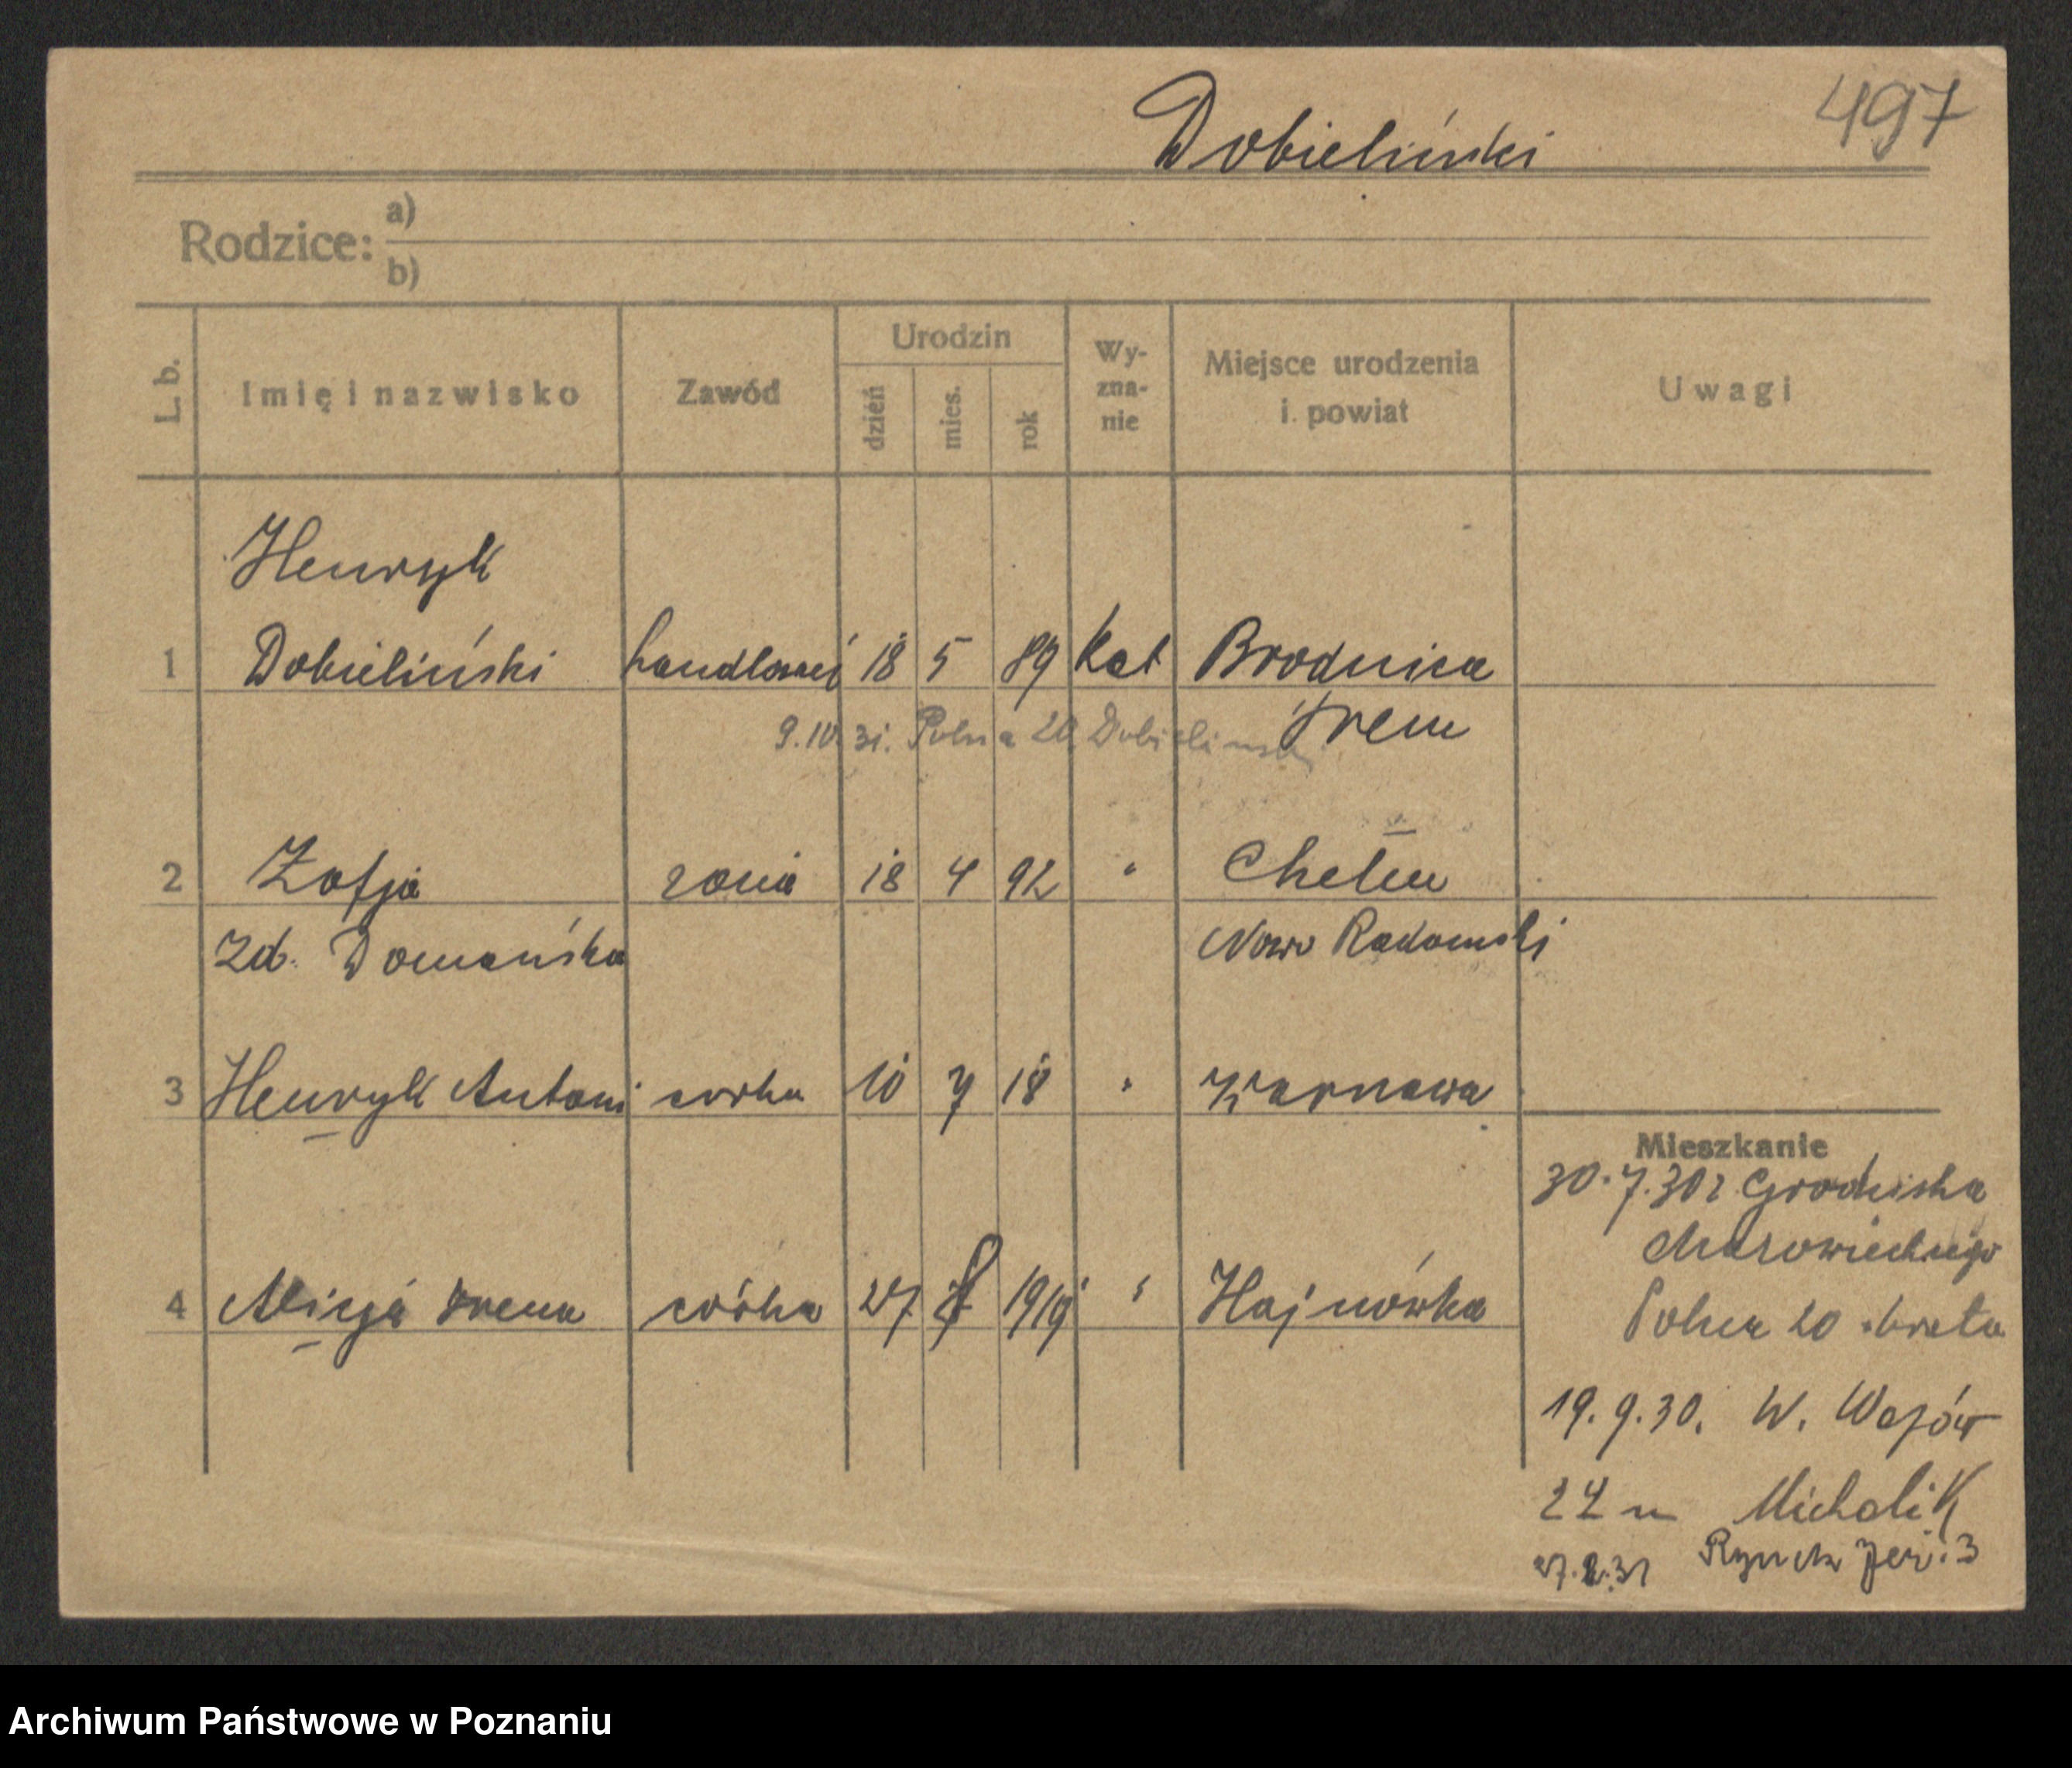 497
Dobieliński
Rodzice: a)
b)
L. b. Imię i nazwisko Zawód Urodzin dzień mies. rok Wy-zna-nie Miejsce urodzenia i powiat Uwagi
Henryk
1 Dobieliński 18 5 89 Kat Brodnica
9.IV.31. Polna 20 Dobieliński Śrem
2 Zofja żona 18 4 92 " Chełm
Zd. Domańska Nowo Radomski
3 Henryk Antoni corka 10 7 18 " Warszawa
Mieszkanie
30.7.30 z Grodziska
Mazowieckiego
4 Alicja Irena córka 27 8 1919 " Hajnówka
Polna 20
19.9.30. W. Wazów
22 m Michalik
27.2.31 Rynek Jer. 3
Archiwum Państwowe w Poznaniu